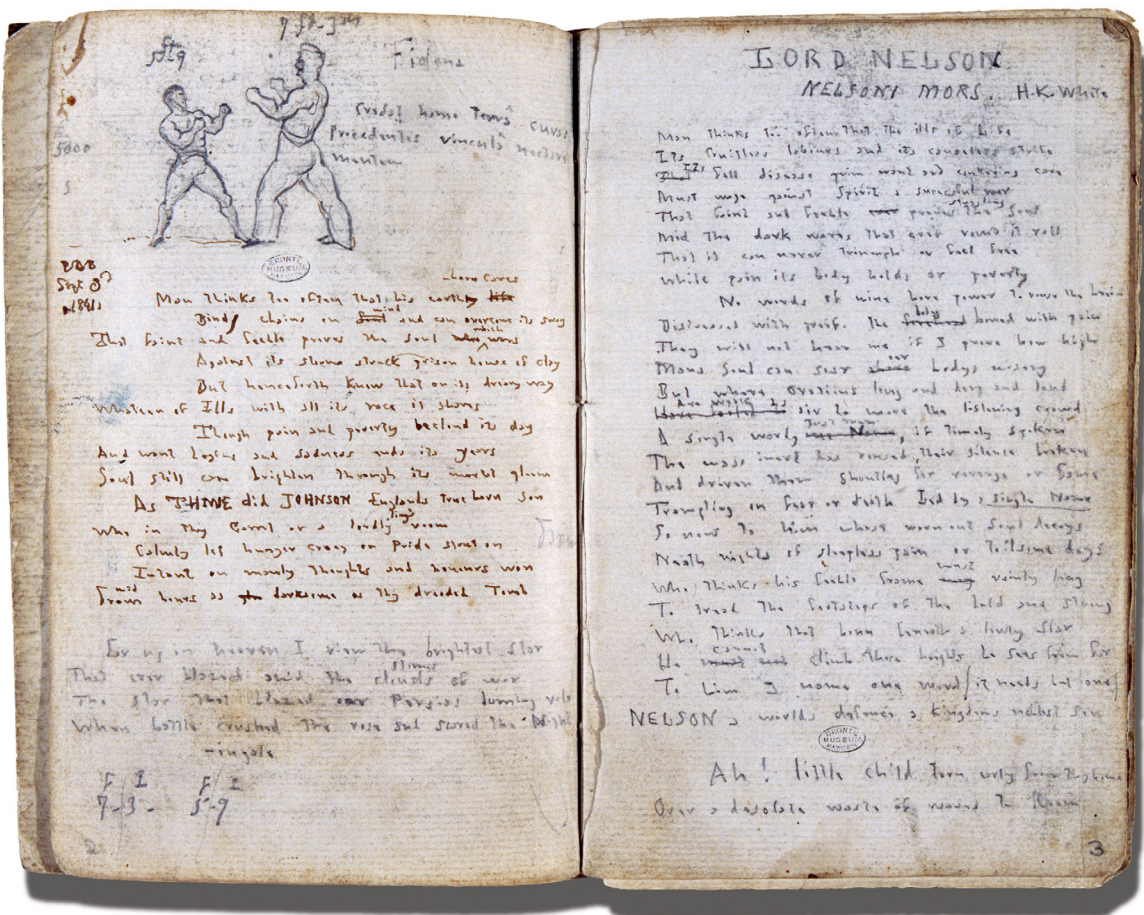 7 ft - 3
5 ft 9
Fidena
home Terrâ
5000
5
BRONTË MUSEUM HAWORTH
PBB
Sept 3d
1841
born cares
Man thinks too often that his earthly life
Binds chains on soul mind and can overcome its sway
That faint and feeble proves the soul which wars
Against its storm struck prison house of clay
But henceforth know that on its dreary way
Whateer of Ills with all its race it shares
Though pain and poverty becloud its day
And want begins and sadness ends its years
Soul still can brighten through its mortal gloom
As THINE did JOHNSON Englands true born son
Who in thy Garret or a lordlings room
Calmly let hunger creep on Pride stout on
Intent on manly thoughts and honours won
From mid hours as darksome as thy dreaded Tomb
Far up in heaven I view the brightest star
That ever blazed amid the storms clouds of war
The star that blazed oer Persias burning vale
When battle crushed the rose and scared the Night
-ingale
F I F I
7-3- 5-9
2
LORD NELSON
NELSONI MORS. H.K. White
Man thinks too often that the ills of Life
Its fruitless labours and its causeless strife
Its fell disease grim want and cankering care
Must wage against Spirit a successful war
That faint and feeble proves the struggling Soul
Mid the dark waves that ever round it roll
That it can never triumph or feel free
While pain its body holds or poverty
No words of mine have power to rouse the brain
Distressed with grief. The body bowed with pain
They will not hear me if I prove how high
Mans Soul can soar oer bodys misery
But where Orations long and deep and loud
Are weak as air to move the listening crowd
A single word just then, if timely spoken
The mass inert has roused, their silence broken
And driven them shouting for revenge or fame
Trampling on fear or death led by a single Name
So now to him whose worn out Soul decays
Neath nights of sleepless pain or toilsome days
Who thinks his feeble frame must vainly long
To tread the footsteps of the bold and strong
Who thinks that born beneath a lowly star
He cannot climb those heights he sees from far
To him I name one word (it needs but one)
NELSON a worlds defence a Kingdoms noblest son
BRONTË MUSEUM HAWORTH
Ah! little child torn early from thy home
Over a desolate waste of waves to roam
3